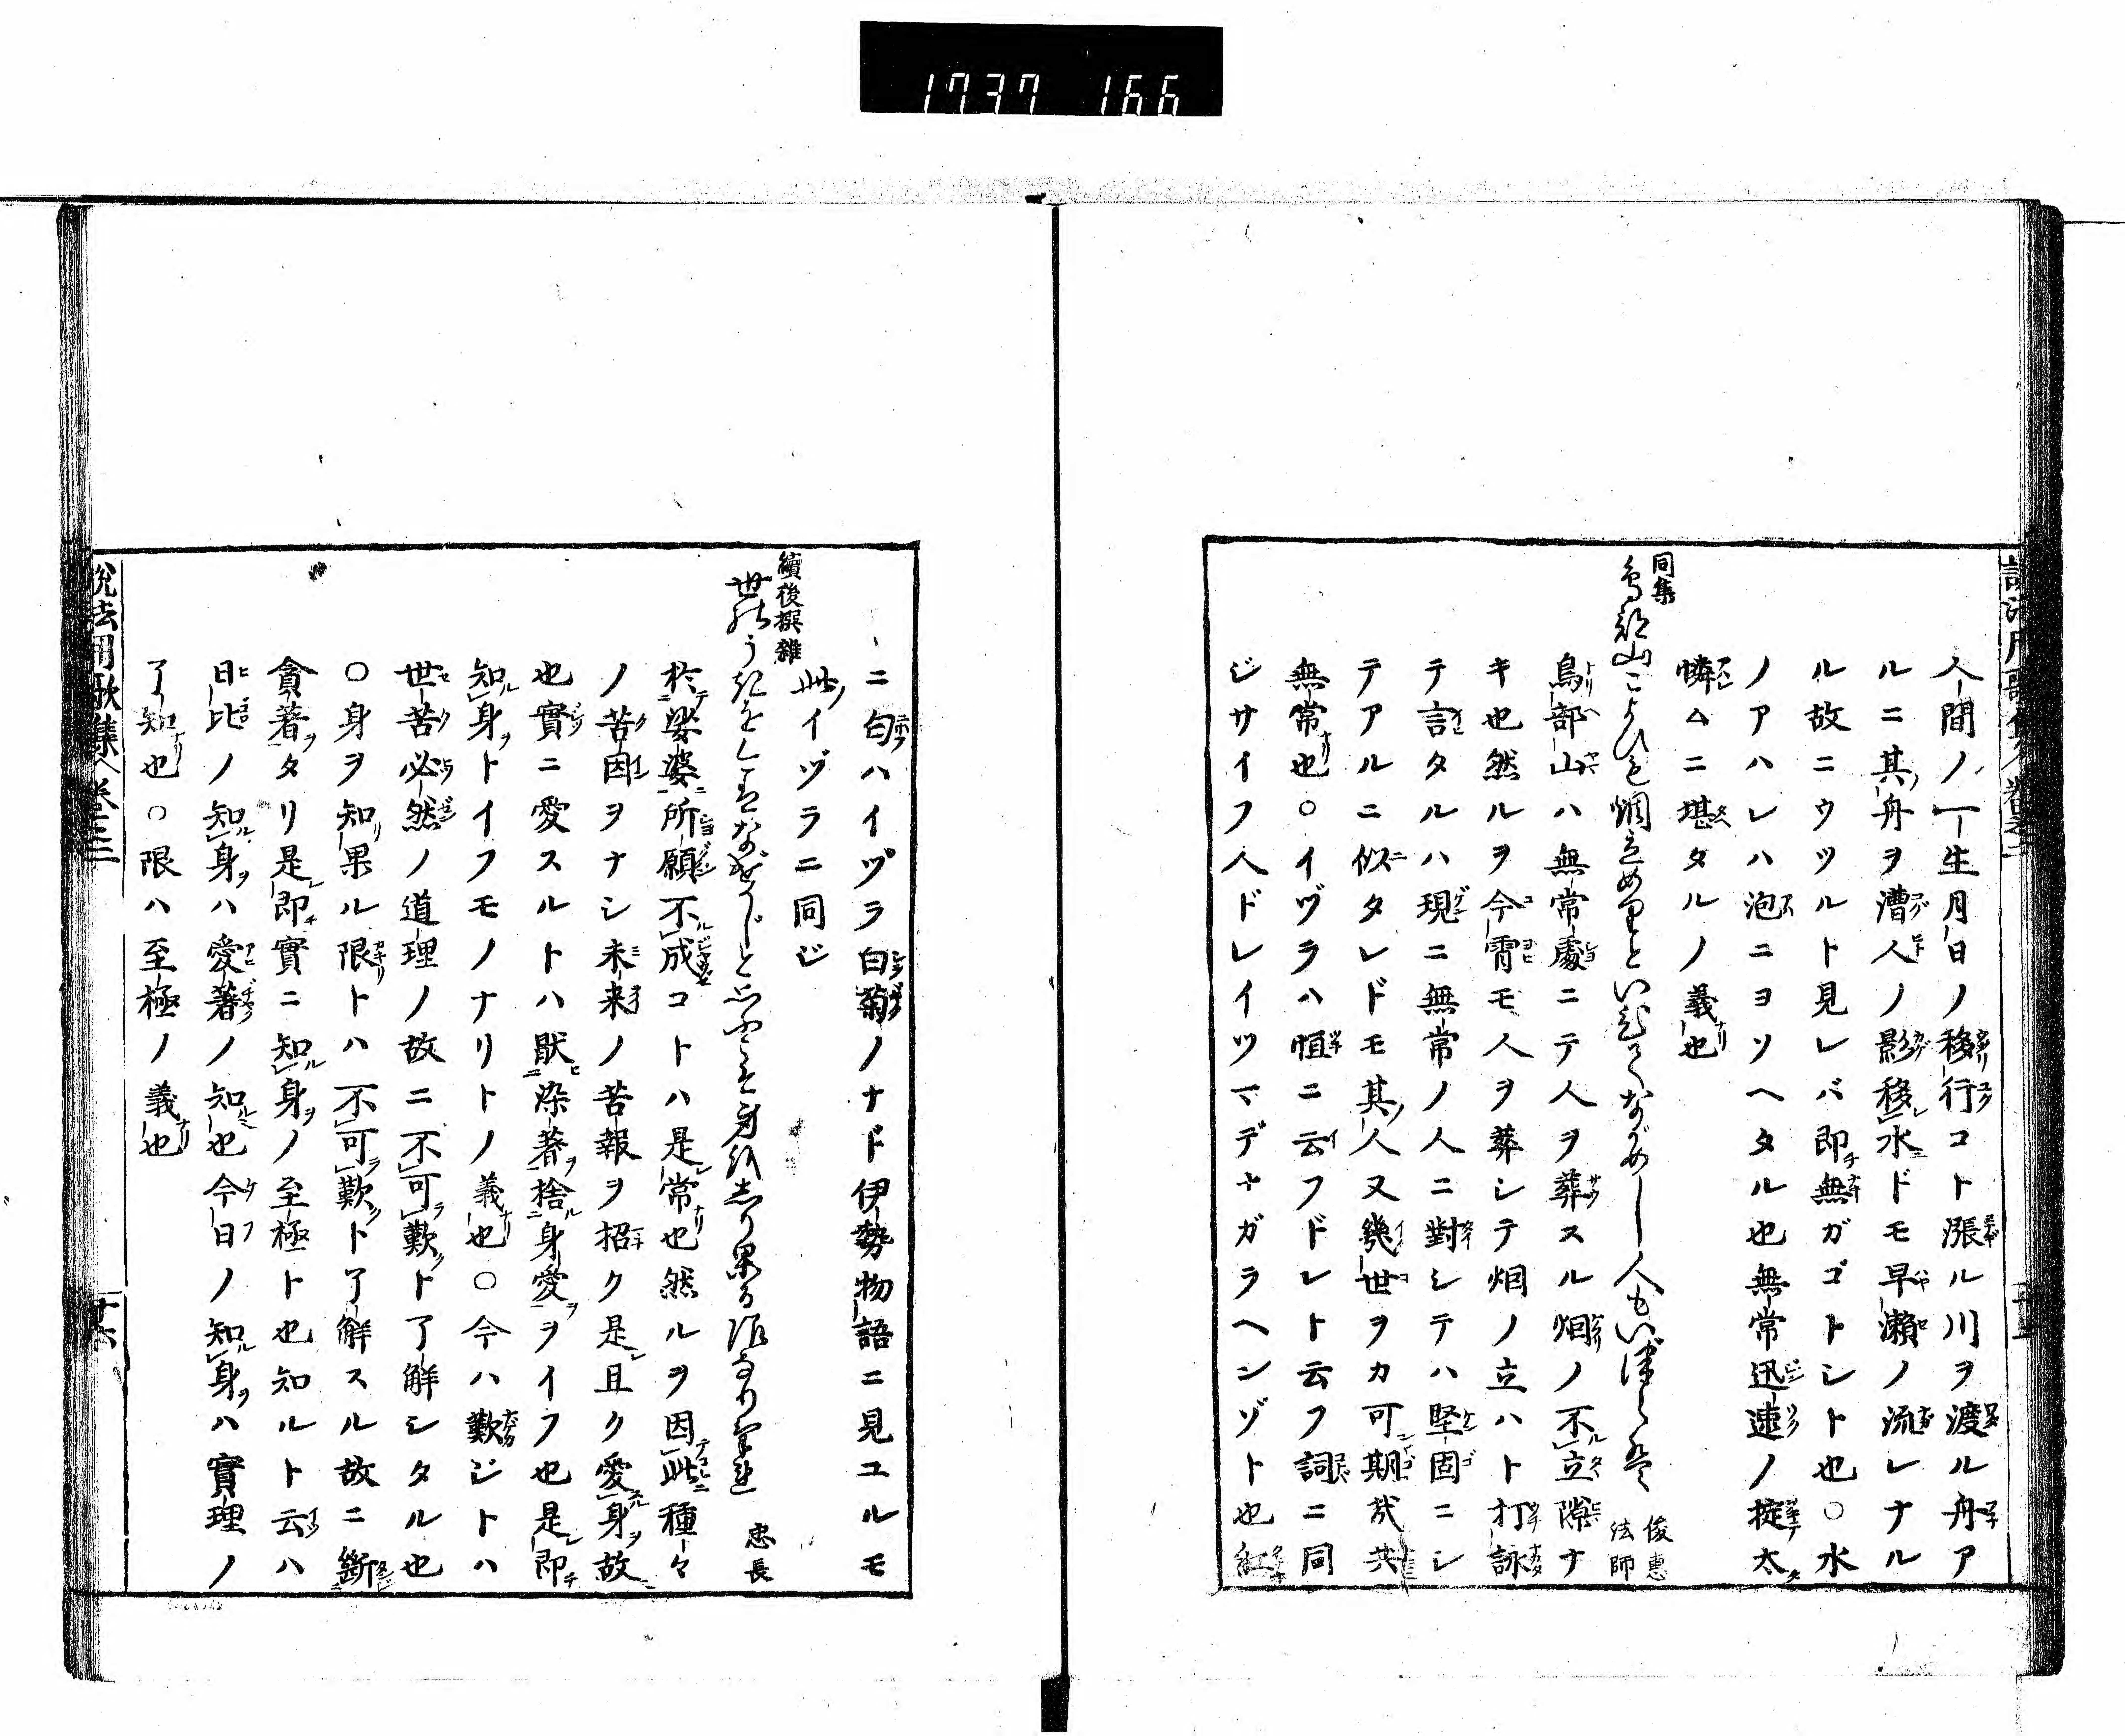 1737 166
人間ノ一生月日ノ移行コト漲ル川ヲ渡ル舟ア
ルニ其舟ヲ漕人ノ影移水ドモ早瀬ノ流レナル
ル故ニウツルト見レバ即無ガゴトシト也○水
ノアハレハ泡ニヨソヘタル也無常迅速ノ掟太
憐ムニ堪タルノ義也
同集
鳥部山こよひも烟立めりといひてながめし人もいづらは
俊惠法師
鳥部山ハ無常處ニテ人ヲ葬スル烟ノ不立隙ナ
キ也然ルヲ今宵モ人ヲ葬シテ烟ノ立ハト打詠
テ言タルハ現ニ無常ノ人ニ對シテハ堅固ニシ
テアルニ似タレドモ其人又幾世ヲカ可期哉共
無常也○イヅラハ恒ニ云フドレト云フ詞ニ同
ジサイフ人ドレイツマデナガラヘンゾト也紅
ニ匂ハイヅラ白菊ノナド伊勢物語ニ見ユルモ
此イヅラニ同ジ
續後撰雜
世のうきを今はなげかじと思ふこそ身を知り果る限なりけれ
忠長
於娑婆所願不成コトハ是常也然ルヲ因此種々
ノ苦因ヲナシ未来ノ苦報ヲ招ク是且ク愛身故
也實ニ愛スルトハ厭染著捨身愛ヲイフ也是即
知身トイフモノナリトノ義也○今ハ歎ジトハ
世苦必然ノ道理ノ故ニ不可歎ト了解シタル也
○身ヲ知果ル限トハ不可歎ト了解スル故ニ斷
貪著タリ是即實ニ知身ノ至極ト也知ルト云ハ
日比ノ知身ハ愛著ノ知也今日ノ知身ハ實理ノ
了知也○限ハ至極ノ義也
說法用歌集 卷之二
十六